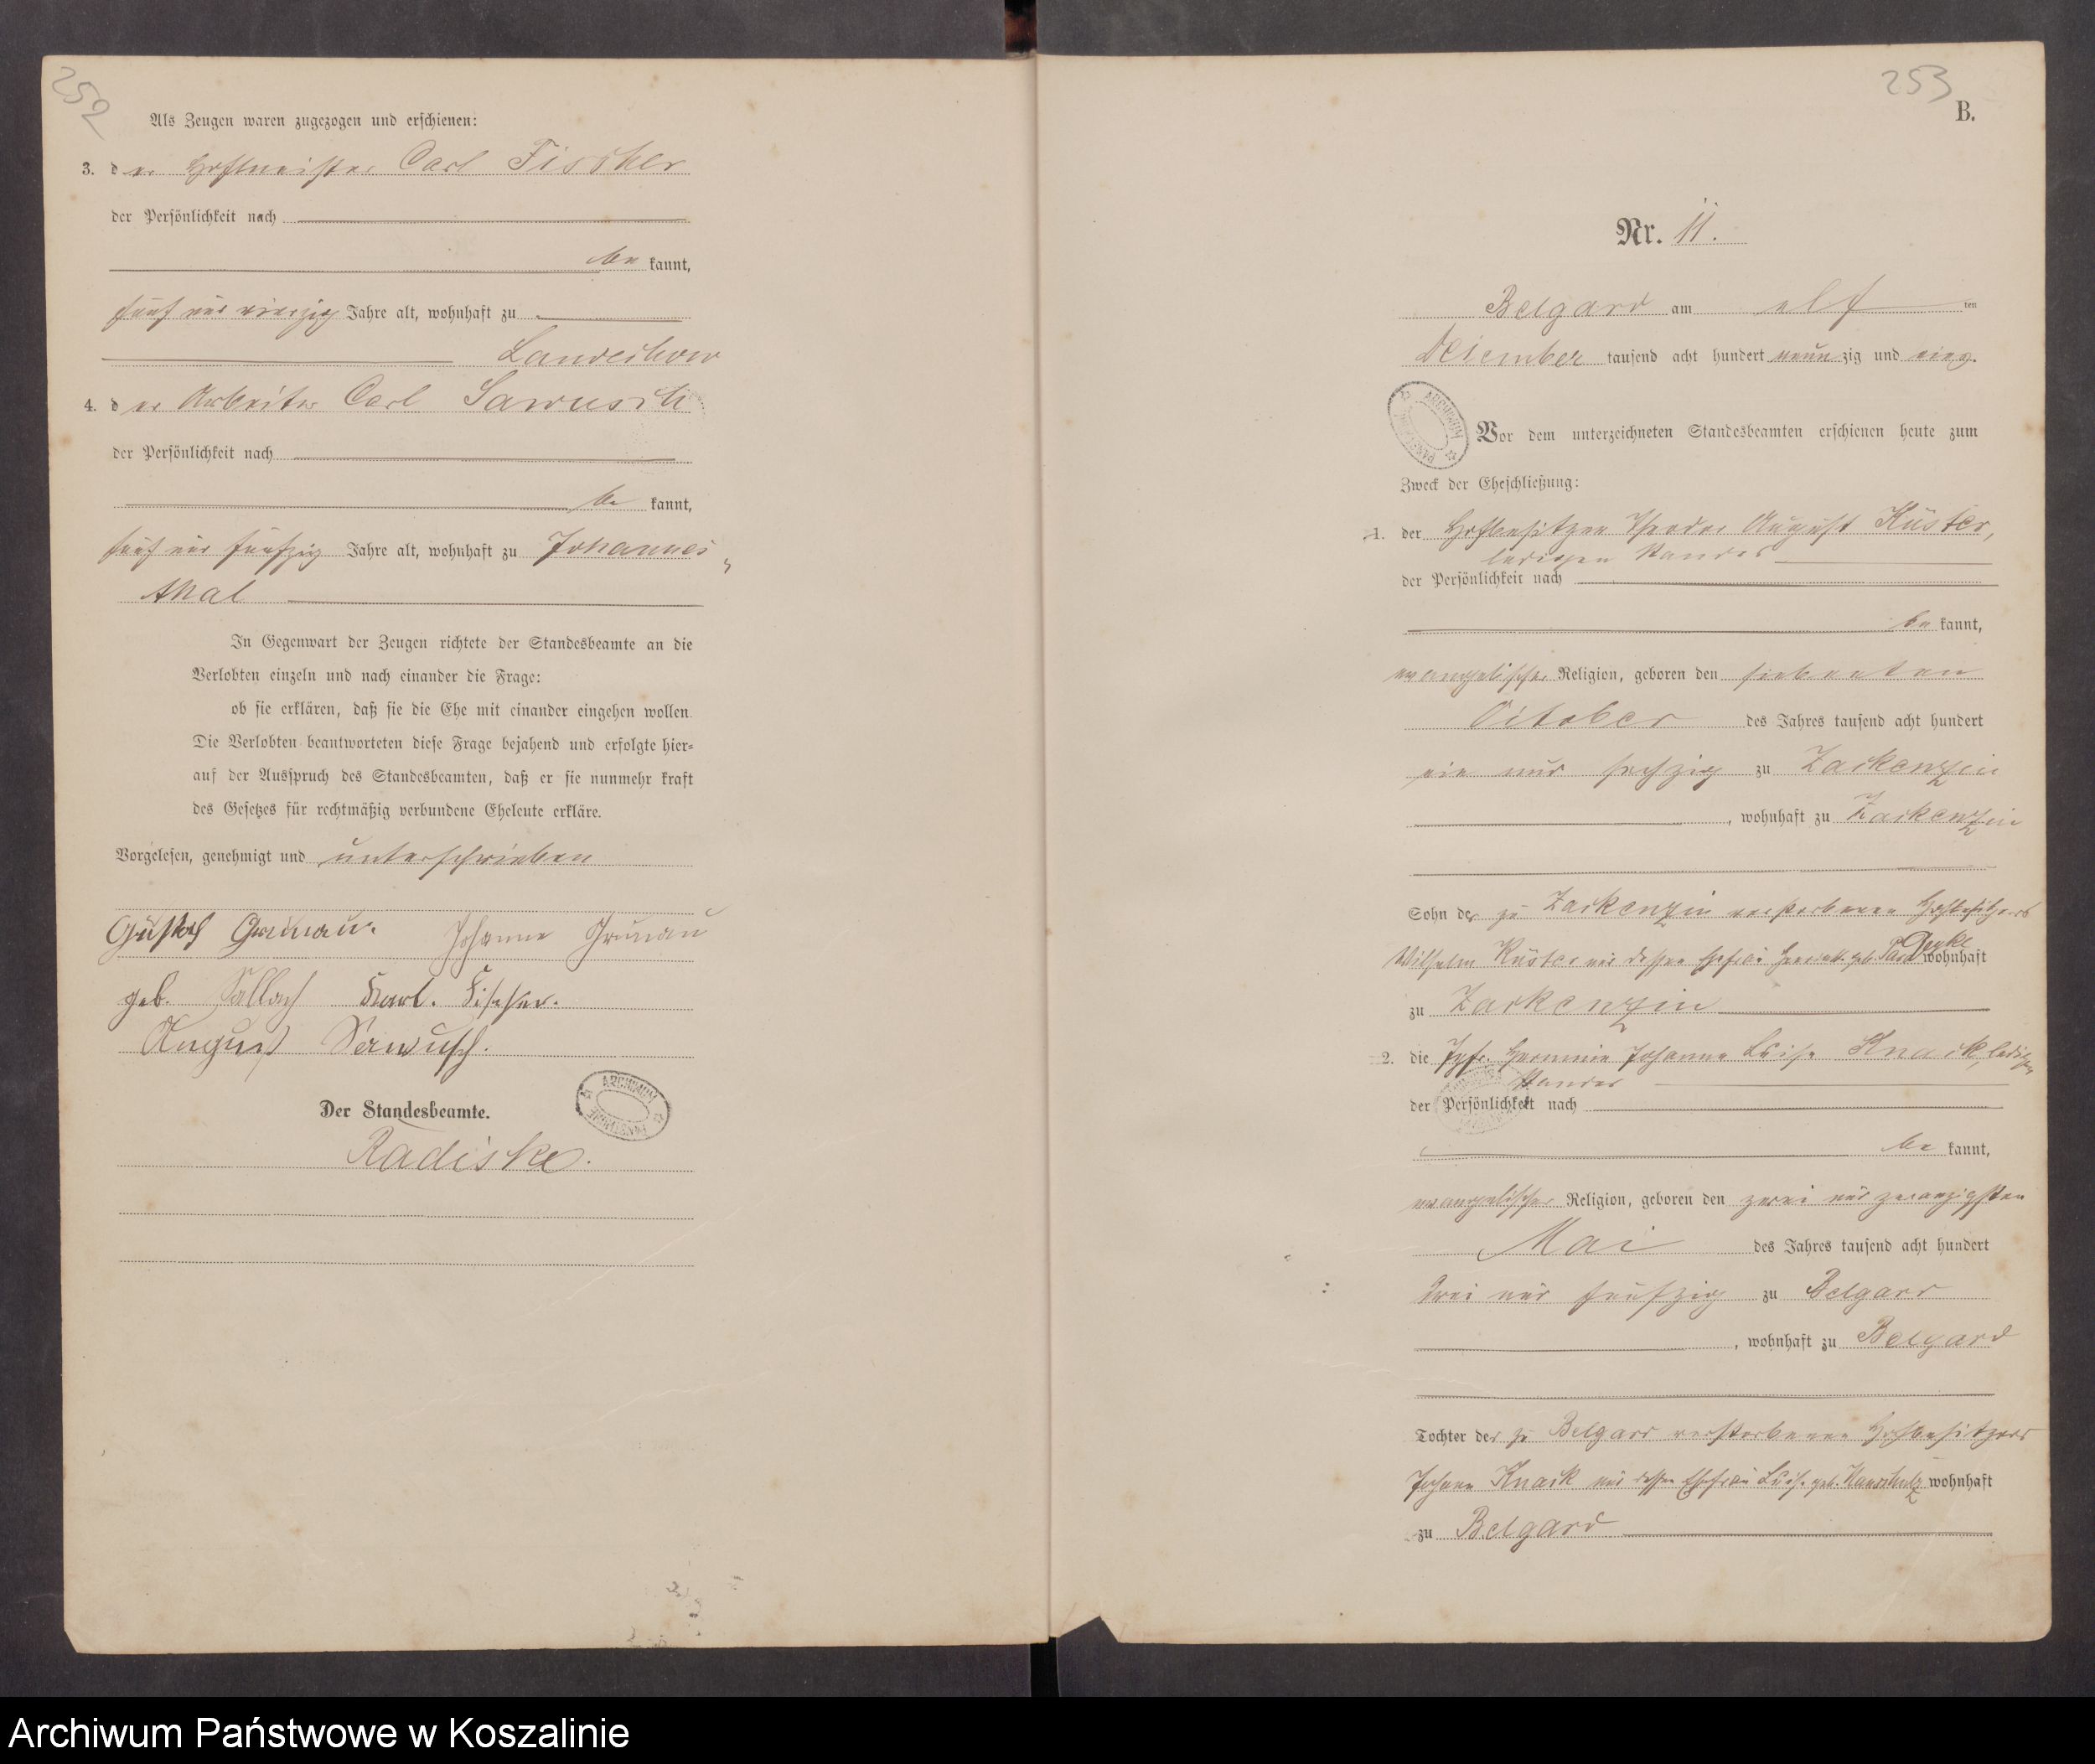 252
Als Zeugen waren zugezogen und erschienen:
3. der Hofmeister Carl Fischer
der Persönlichkeit nach
be kannt,
fünf und vierzig Jahre alt, wohnhaft zu
Landechow
4. der Arbeiter Carl Sawusch
der Persönlichkeit nach
be kannt,
fünf und fünfzig Jahre alt, wohnhaft zu Johannes
thal
In Gegenwart der Zeugen richtete der Standesbeamte an die
Verlobten einzeln und nach einander die Frage:
ob sie erklären, daß sie die Ehe mit einander eingehen wollen.
Die Verlobten beantworteten diese Frage bejahend und erfolgte hier=
auf der Ausspruch des Standesbeamten, daß er sie nunmehr kraft
des Gesetzes für rechtmäßig verbundene Eheleute erkläre.
Vorgelesen, genehmigt und unterschrieben
Gustaf Grunau. Johanne Grunau
geb. Sallach Karl. Fischer.
August Sawusch.
Der Standesbeamte.
ARCHIWUM PAŃSTWOWE
Radiske.
253
B.
Nr. 11.
Belgard am elf ten
Dezember tausend acht hundert neun zig und eins.
ARCHIWUM
Vor dem unterzeichneten Standesbeamten erschienen heute zum
Zweck der Eheschließung:
1. der Hofbesitzer Theodor August Küster,
ledigen Standes
der Persönlichkeit nach
be kannt,
evangelischer Religion, geboren den siebenten
October des Jahres tausend acht hundert
ein und sechzig zu Zackenzin
, wohnhaft zu Zackenzin
Sohn des zu Zackenzin verstorbenen Hofbesitzers
Wilhelm Küster und dessen Ehefrau Henriette geb. wohnhaft
zu Zackenzin
2. die Jgfr. Hermine Johanne Luise Knack, ledigen
Standes
der Persönlichkeit nach
be kannt,
evangelischer Religion, geboren den zwei und zwanzigsten
Mai des Jahres tausend acht hundert
drei und fünfzig zu Belgard
, wohnhaft zu Belgard
Tochter des zu Belgard verstorbenen Hofbesitzers
Johann Knack und dessen Ehefrau Luise geb. wohnhaft
zu Belgard
Archiwum Państwowe w Koszalinie